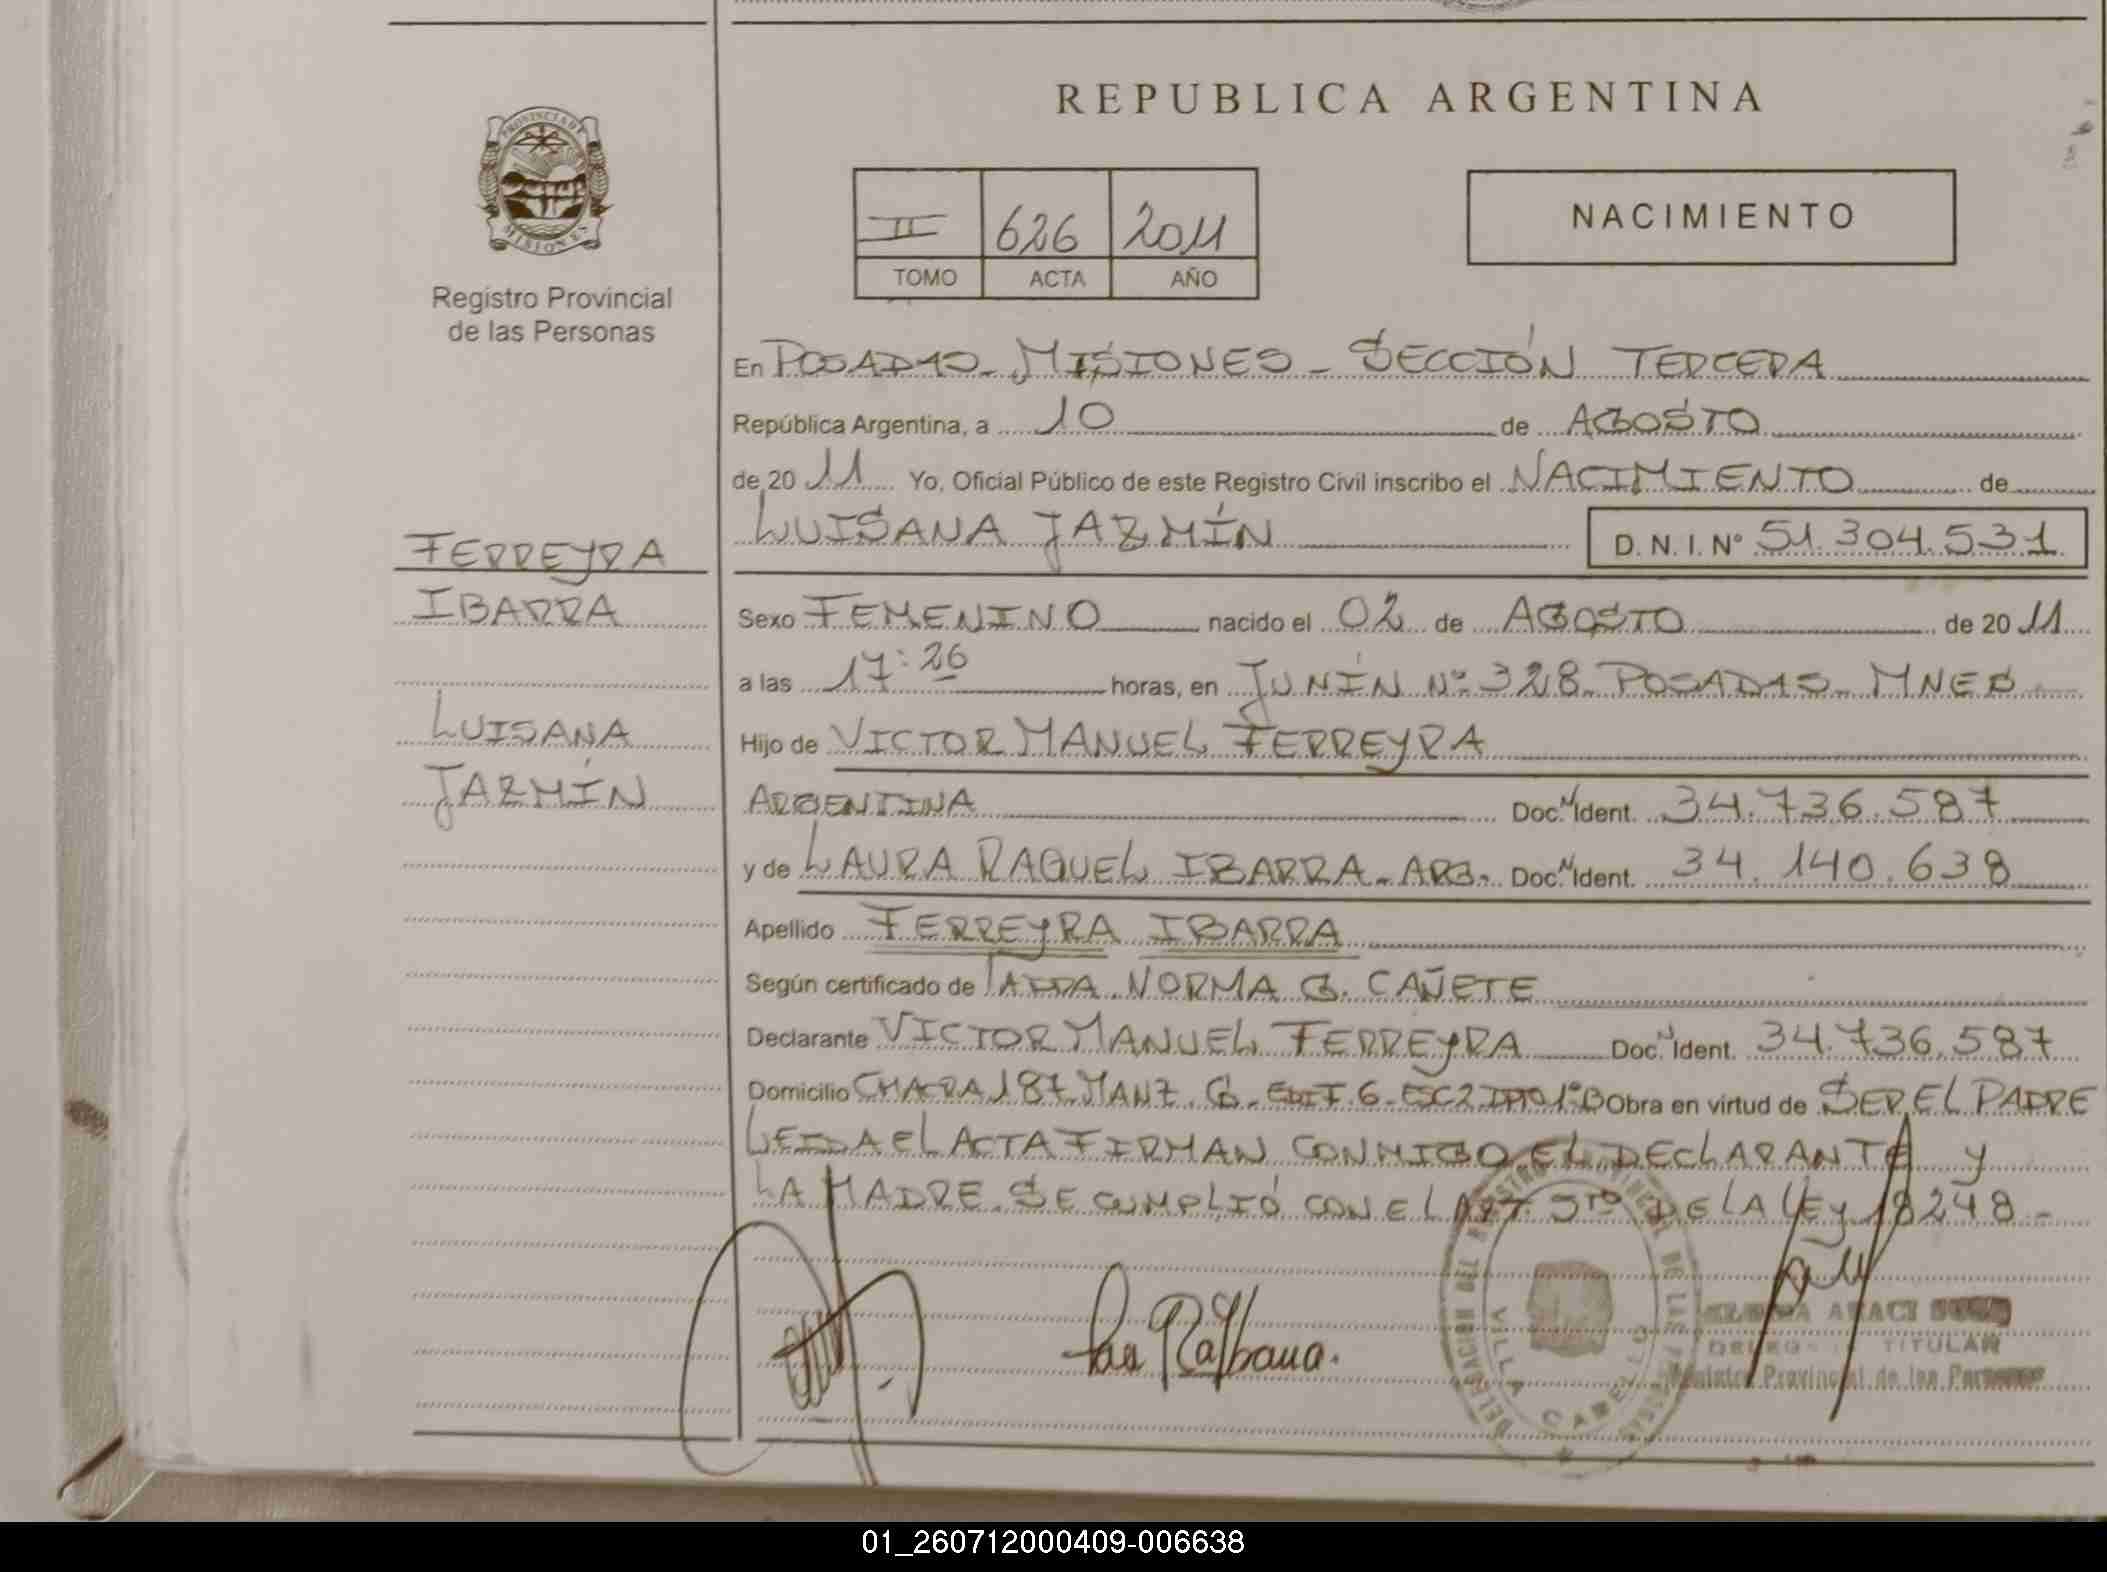 REPUBLICA ARGENTINA
PROVINCIA DE
MISIONES
Registro Provincial
de las Personas
II 626 2011
TOMO ACTA AÑO
NACIMIENTO
En POSADAS - MISIONES - SECCIÓN TERCERA
República Argentina, a 10 de AGOSTO
de 20 11 Yo, Oficial Público de este Registro Civil inscribo el NACIMIENTO de
LUISANA JAZMÍN D.N.I. Nº 51.304.531
FERREYRA
IBARRA
LUISANA
JAZMÍN
Sexo FEMENINO nacido el 02 de AGOSTO de 20 11
a las 17:26 horas, en JUNÍN Nº 328 - POSADAS - MNES
Hijo de VICTOR MANUEL FERREYRA
ARGENTINA Doc. N Ident. 34.736.587
y de LAURA RAQUEL IBARRA - ARG. Doc. N Ident. 34.140.638
Apellido FERREYRA IBARRA
Según certificado de NORMA G. CAÑETE
Declarante VICTOR MANUEL FERREYRA Doc. N Ident. 34.736.587
Domicilio CHACRA 187 MANZ. G - EDIF. 6 - ESC 2 DPTO 1º B Obra en virtud de SER EL PADRE
LEIDA EL ACTA FIRMAN CONMIGO EL DECLARANTE y
LA MADRE. SE CUMPLIÓ CON EL ART. 5TO DE LA LEY 18248 -
VILLA CABELLO
ARACI
TITULAR
Provincial de las Personas
01_260712000409-006638